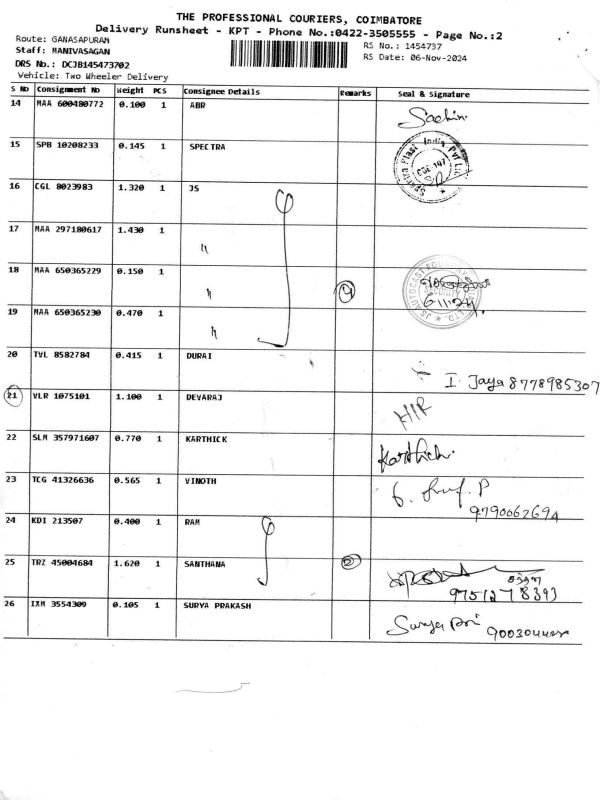 THE PROFESSIONAL COURIERS, COIMBATORE
Delivery Runsheet - KPT - Phone No.:0422-3505555 - Page No.:2
Route: GANASAPURAM
RS No.: 1454737
Staff: MANIVASAGAN
RS Date: 06-Nov-2024
DRS No.: DCJB145473702
Vehicle: Two Wheeler Delivery
S No Consignment No Weight PCS Consignee Details Remarks Seal & Signature
14 MAA 600480772 0.100 1 ABR Sachin
15 SPB 10208233 0.145 1 SPECTRA
Spectra Plast India Pvt Ltd
CBE-107
16 CGL 8023983 1.320 1 JS
17 MAA 297180617 1.430 1 "
18 MAA 650365229 0.150 1 " 4
JS AUTOCAST FOUNDRY LTD.
SECURITY
6/11/24
19 MAA 650365230 0.470 1 "
20 TVL 8582784 0.415 1 DURAI I. Jaya 8778985307
21 VLR 1075101 1.100 1 DEVARAJ
22 SLM 357971607 0.770 1 KARTHICK Karthick
23 TCG 41326636 0.565 1 VINOTH P
9790662694
24 KDI 213507 0.400 1 RAM
25 TRZ 45004684 1.620 1 SANTHANA 2
9751278393
26 IXM 3554309 0.105 1 SURYA PRAKASH Surya